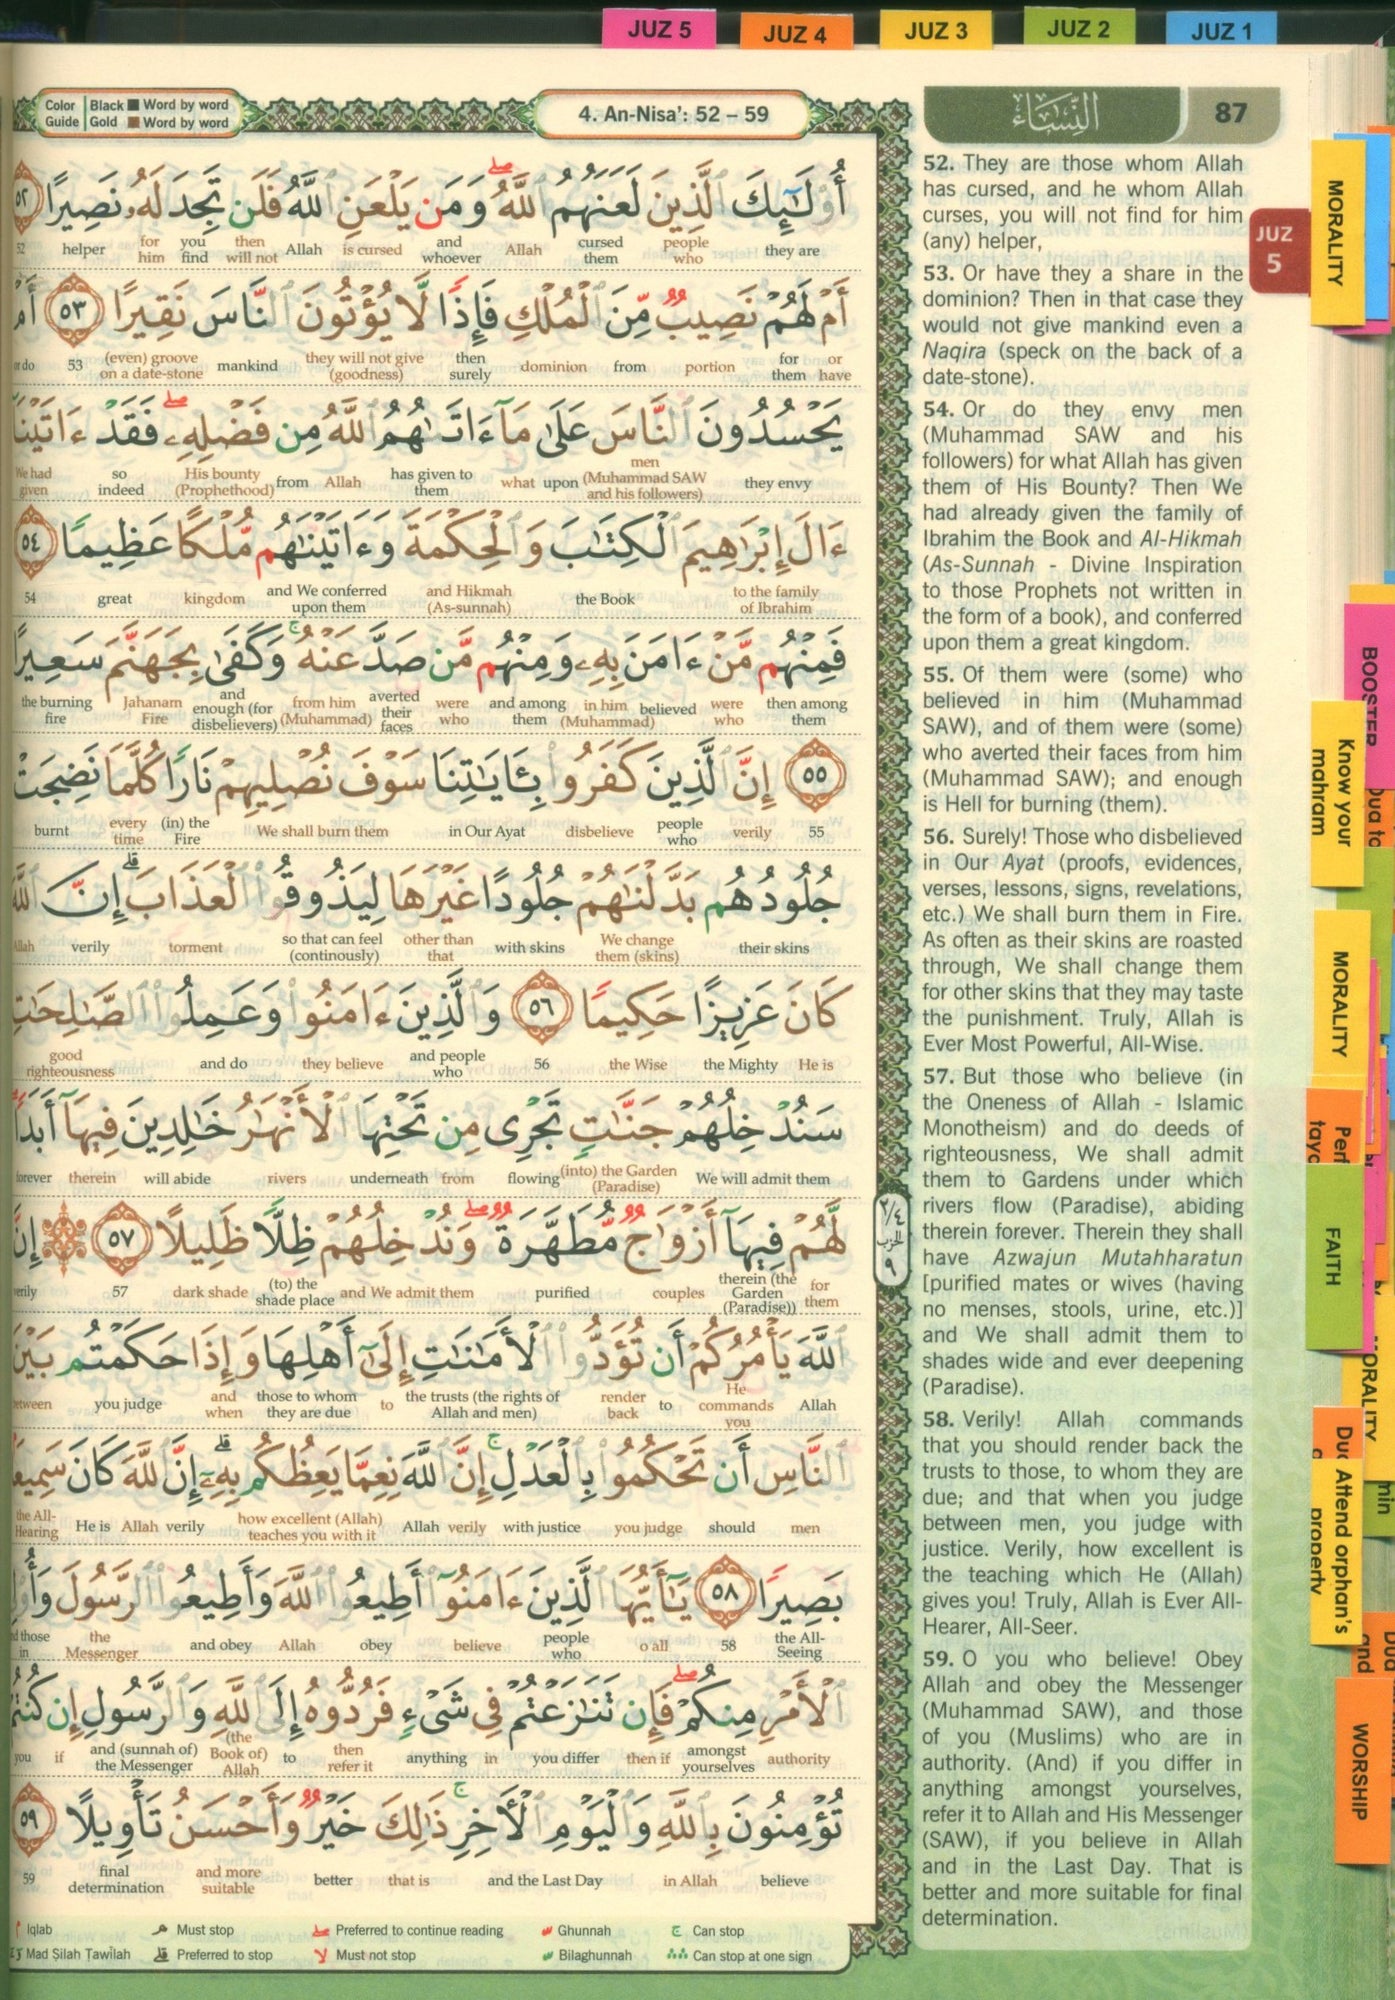 JUZ 5
JUZ 4
JUZ 3
JUZ 2
JUZ 1
Color Guide
Black Word by word
Gold Word by word
4. An-Nisa': 52 – 59
النِّسَاء
87
أُو۟لَـٰٓئِكَ ٱلَّذِينَ لَعَنَهُمُ ٱللَّهُ ۖ وَمَن يَلْعَنِ ٱللَّهُ فَلَن تَجِدَ لَهُۥ نَصِيرًا ٥٢
they are
people who
cursed them
Allah
and whoever
is cursed
Allah
then will not
you find
for him
helper
52
أَمْ لَهُمْ نَصِيبٌ مِّنَ ٱلْمُلْكِ فَإِذًا لَّا يُؤْتُونَ ٱلنَّاسَ نَقِيرًا ٥٣ أَمْ
or have
for them
portion
from
dominion
then surely
they will not give (goodness)
mankind
(even) groove on a date-stone
53
or do
يَحْسُدُونَ ٱلنَّاسَ عَلَىٰ مَآ ءَاتَىٰهُمُ ٱللَّهُ مِن فَضْلِهِۦ ۖ فَقَدْ ءَاتَيْنَآ
they envy
men (Muhammad SAW and his followers)
upon
what
has given to them
Allah
from
His bounty (Prophethood)
so indeed
We had given
ءَالَ إِبْرَٰهِيمَ ٱلْكِتَـٰبَ وَٱلْحِكْمَةَ وَءَاتَيْنَـٰهُم مُّلْكًا عَظِيمًا ٥٤
to the family of Ibrahim
the Book
and Hikmah (As-sunnah)
and We conferred upon them
kingdom
great
54
فَمِنْهُم مَّنْ ءَامَنَ بِهِۦ وَمِنْهُم مَّن صَدَّ عَنْهُ ۚ وَكَفَىٰ بِجَهَنَّمَ سَعِيرًا
then among them
were who
believed
in him (Muhammad)
and among them
were who
averted their faces
from him (Muhammad)
and enough (for disbelievers)
Jahanam Fire
the burning fire
٥٥ إِنَّ ٱلَّذِينَ كَفَرُوا۟ بِـَٔايَـٰتِنَا سَوْفَ نُصْلِيهِمْ نَارًا كُلَّمَا نَضِجَتْ
55
verily
people who
disbelieve
in Our Ayat
We shall burn them
(in) the Fire
every time
burnt
جُلُودُهُم بَدَّلْنَـٰهُمْ جُلُودًا غَيْرَهَا لِيَذُوقُوا۟ ٱلْعَذَابَ ۗ إِنَّ ٱللَّهَ
their skins
We change them (skins)
with skins
other than that
so that can feel (continously)
torment
verily
Allah
كَانَ عَزِيزًا حَكِيمًا ٥٦ وَٱلَّذِينَ ءَامَنُوا۟ وَعَمِلُوا۟ ٱلصَّـٰلِحَـٰتِ
He is
the Mighty
the Wise
56
and people who
they believe
and do
good righteousness
سَنُدْخِلُهُمْ جَنَّـٰتٍ تَجْرِى مِن تَحْتِهَا ٱلْأَنْهَـٰرُ خَـٰلِدِينَ فِيهَآ أَبَدًا
We will admit them
(into) the Garden (Paradise)
flowing
from
underneath
rivers
will abide
therein
forever
لَّهُمْ فِيهَآ أَزْوَٰجٌ مُّطَهَّرَةٌ ۖ وَنُدْخِلُهُمْ ظِلًّا ظَلِيلًا ٥٧ ۞ إِنَّ
for them
therein (the Garden (Paradise))
couples
purified
and We admit them
(to) the shade place
dark shade
57
verily
٢/٤ الحزب ٩
ٱللَّهَ يَأْمُرُكُمْ أَن تُؤَدُّوا۟ ٱلْأَمَـٰنَـٰتِ إِلَىٰٓ أَهْلِهَا وَإِذَا حَكَمْتُم بَيْنَ
Allah
He commands you
to
render back
the trusts (the rights of Allah and men)
to
those to whom they are due
and when
you judge
between
ٱلنَّاسِ أَن تَحْكُمُوا۟ بِٱلْعَدْلِ ۚ إِنَّ ٱللَّهَ نِعِمَّا يَعِظُكُم بِهِۦٓ ۗ إِنَّ ٱللَّهَ كَانَ سَمِيعًۢا
men
should
you judge
with justice
verily
Allah
how excellent (Allah) teaches you with it
verily
Allah
He is
the All-Hearing
بَصِيرًا ٥٨ يَـٰٓأَيُّهَا ٱلَّذِينَ ءَامَنُوٓا۟ أَطِيعُوا۟ ٱللَّهَ وَأَطِيعُوا۟ ٱلرَّسُولَ وَأُو۟لِى
the All-Seeing
58
o all
people who
believe
obey
Allah
and obey
the Messenger
and those in
ٱلْأَمْرِ مِنكُمْ ۖ فَإِن تَنَـٰزَعْتُمْ فِى شَىْءٍ فَرُدُّوهُ إِلَى ٱللَّهِ وَٱلرَّسُولِ إِن كُنتُمْ
authority
amongst yourselves
then if
you differ
in
anything
then refer it
to
(the Book of) Allah
and (sunnah of) the Messenger
if
you
تُؤْمِنُونَ بِٱللَّهِ وَٱلْيَوْمِ ٱلْـَٔاخِرِ ۚ ذَٰلِكَ خَيْرٌ وَأَحْسَنُ تَأْوِيلًا ٥٩
believe
in Allah
and the Last Day
that is
better
and more suitable
final determination
59
Iqlab
Must stop
Preferred to continue reading
Ghunnah
Can stop
Mad Silah Tawilah
Preferred to stop
Must not stop
Bilaghunnah
Can stop at one sign
52. They are those whom Allah
has cursed, and he whom Allah
curses, you will not find for him
(any) helper,
53. Or have they a share in the
dominion? Then in that case they
would not give mankind even a
Naqira (speck on the back of a
date-stone).
54. Or do they envy men
(Muhammad SAW and his
followers) for what Allah has given
them of His Bounty? Then We
had already given the family of
Ibrahim the Book and Al-Hikmah
(As-Sunnah - Divine Inspiration
to those Prophets not written in
the form of a book), and conferred
upon them a great kingdom.
55. Of them were (some) who
believed in him (Muhammad
SAW), and of them were (some)
who averted their faces from him
(Muhammad SAW); and enough
is Hell for burning (them).
56. Surely! Those who disbelieved
in Our Ayat (proofs, evidences,
verses, lessons, signs, revelations,
etc.) We shall burn them in Fire.
As often as their skins are roasted
through, We shall change them
for other skins that they may taste
the punishment. Truly, Allah is
Ever Most Powerful, All-Wise.
57. But those who believe (in
the Oneness of Allah - Islamic
Monotheism) and do deeds of
righteousness, We shall admit
them to Gardens under which
rivers flow (Paradise), abiding
therein forever. Therein they shall
have Azwajun Mutahharatun
[purified mates or wives (having
no menses, stools, urine, etc.)]
and We shall admit them to
shades wide and ever deepening
(Paradise).
58. Verily! Allah commands
that you should render back the
trusts to those, to whom they are
due; and that when you judge
between men, you judge with
justice. Verily, how excellent is
the teaching which He (Allah)
gives you! Truly, Allah is Ever All-
Hearer, All-Seer.
59. O you who believe! Obey
Allah and obey the Messenger
(Muhammad SAW), and those
of you (Muslims) who are in
authority. (And) if you differ in
anything amongst yourselves,
refer it to Allah and His Messenger
(SAW), if you believe in Allah
and in the Last Day. That is
better and more suitable for final
determination.
JUZ
5
MORALITY
BOOSTER
Know your
mahram
Dua to
MORALITY
FAITH
MORALITY
Attend orphan's
property
WORSHIP